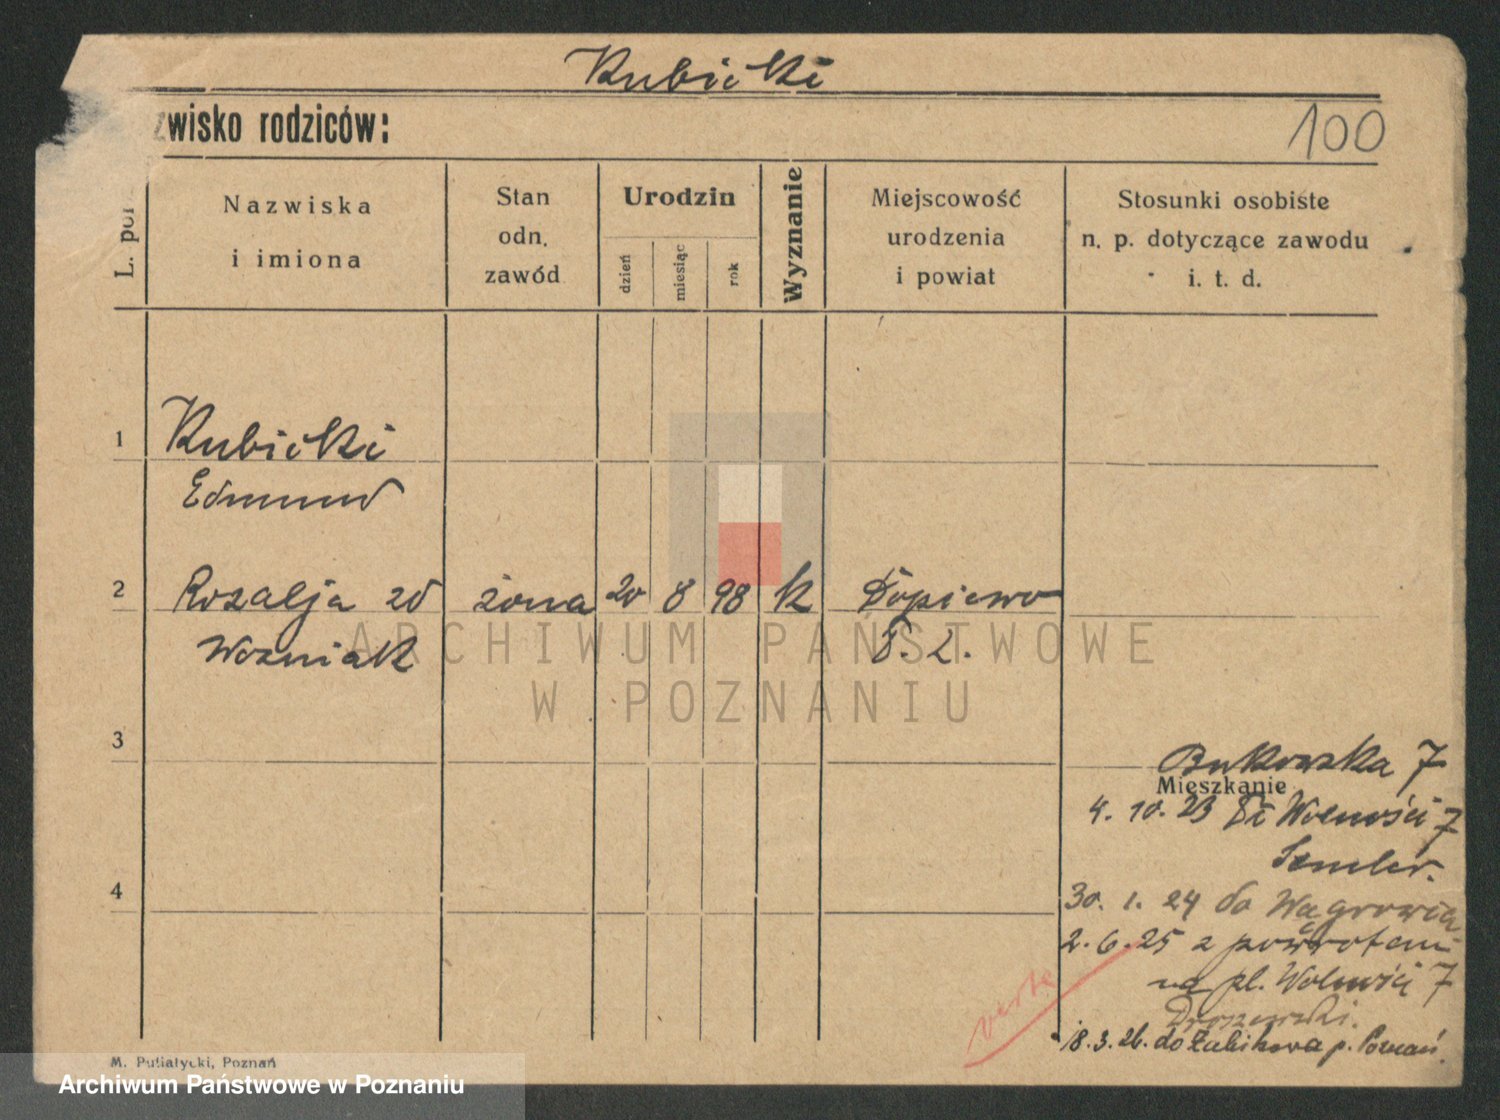 Kubicki
zwisko rodziców:
100
L. por.
Nazwiska
i imiona
Stan
odn.
zawód
Urodzin
dzień
miesiąc
rok
Wyznanie
Miejscowość
urodzenia
i powiat
Stosunki osobiste
n. p. dotyczące zawodu
i. t. d.
1
Kubicki
Edmund
2
Rozalja zd
żona
20
8
98
k
Dopiewo
Wozniak
ARCHIWUM PAŃSTWOWE
W POZNANIU
3
Bukowska 7
Mieszkanie
4. 10. 23 Pl Wolności 7
4
30. 1. 24 do Wągrowca
2. 6. 25 z powrotem
na pl. Wolności 7
verte
18. 3. 26. do Żabikowa p. Poznań.
M. Putiatycki, Poznań
Archiwum Państwowe w Poznaniu